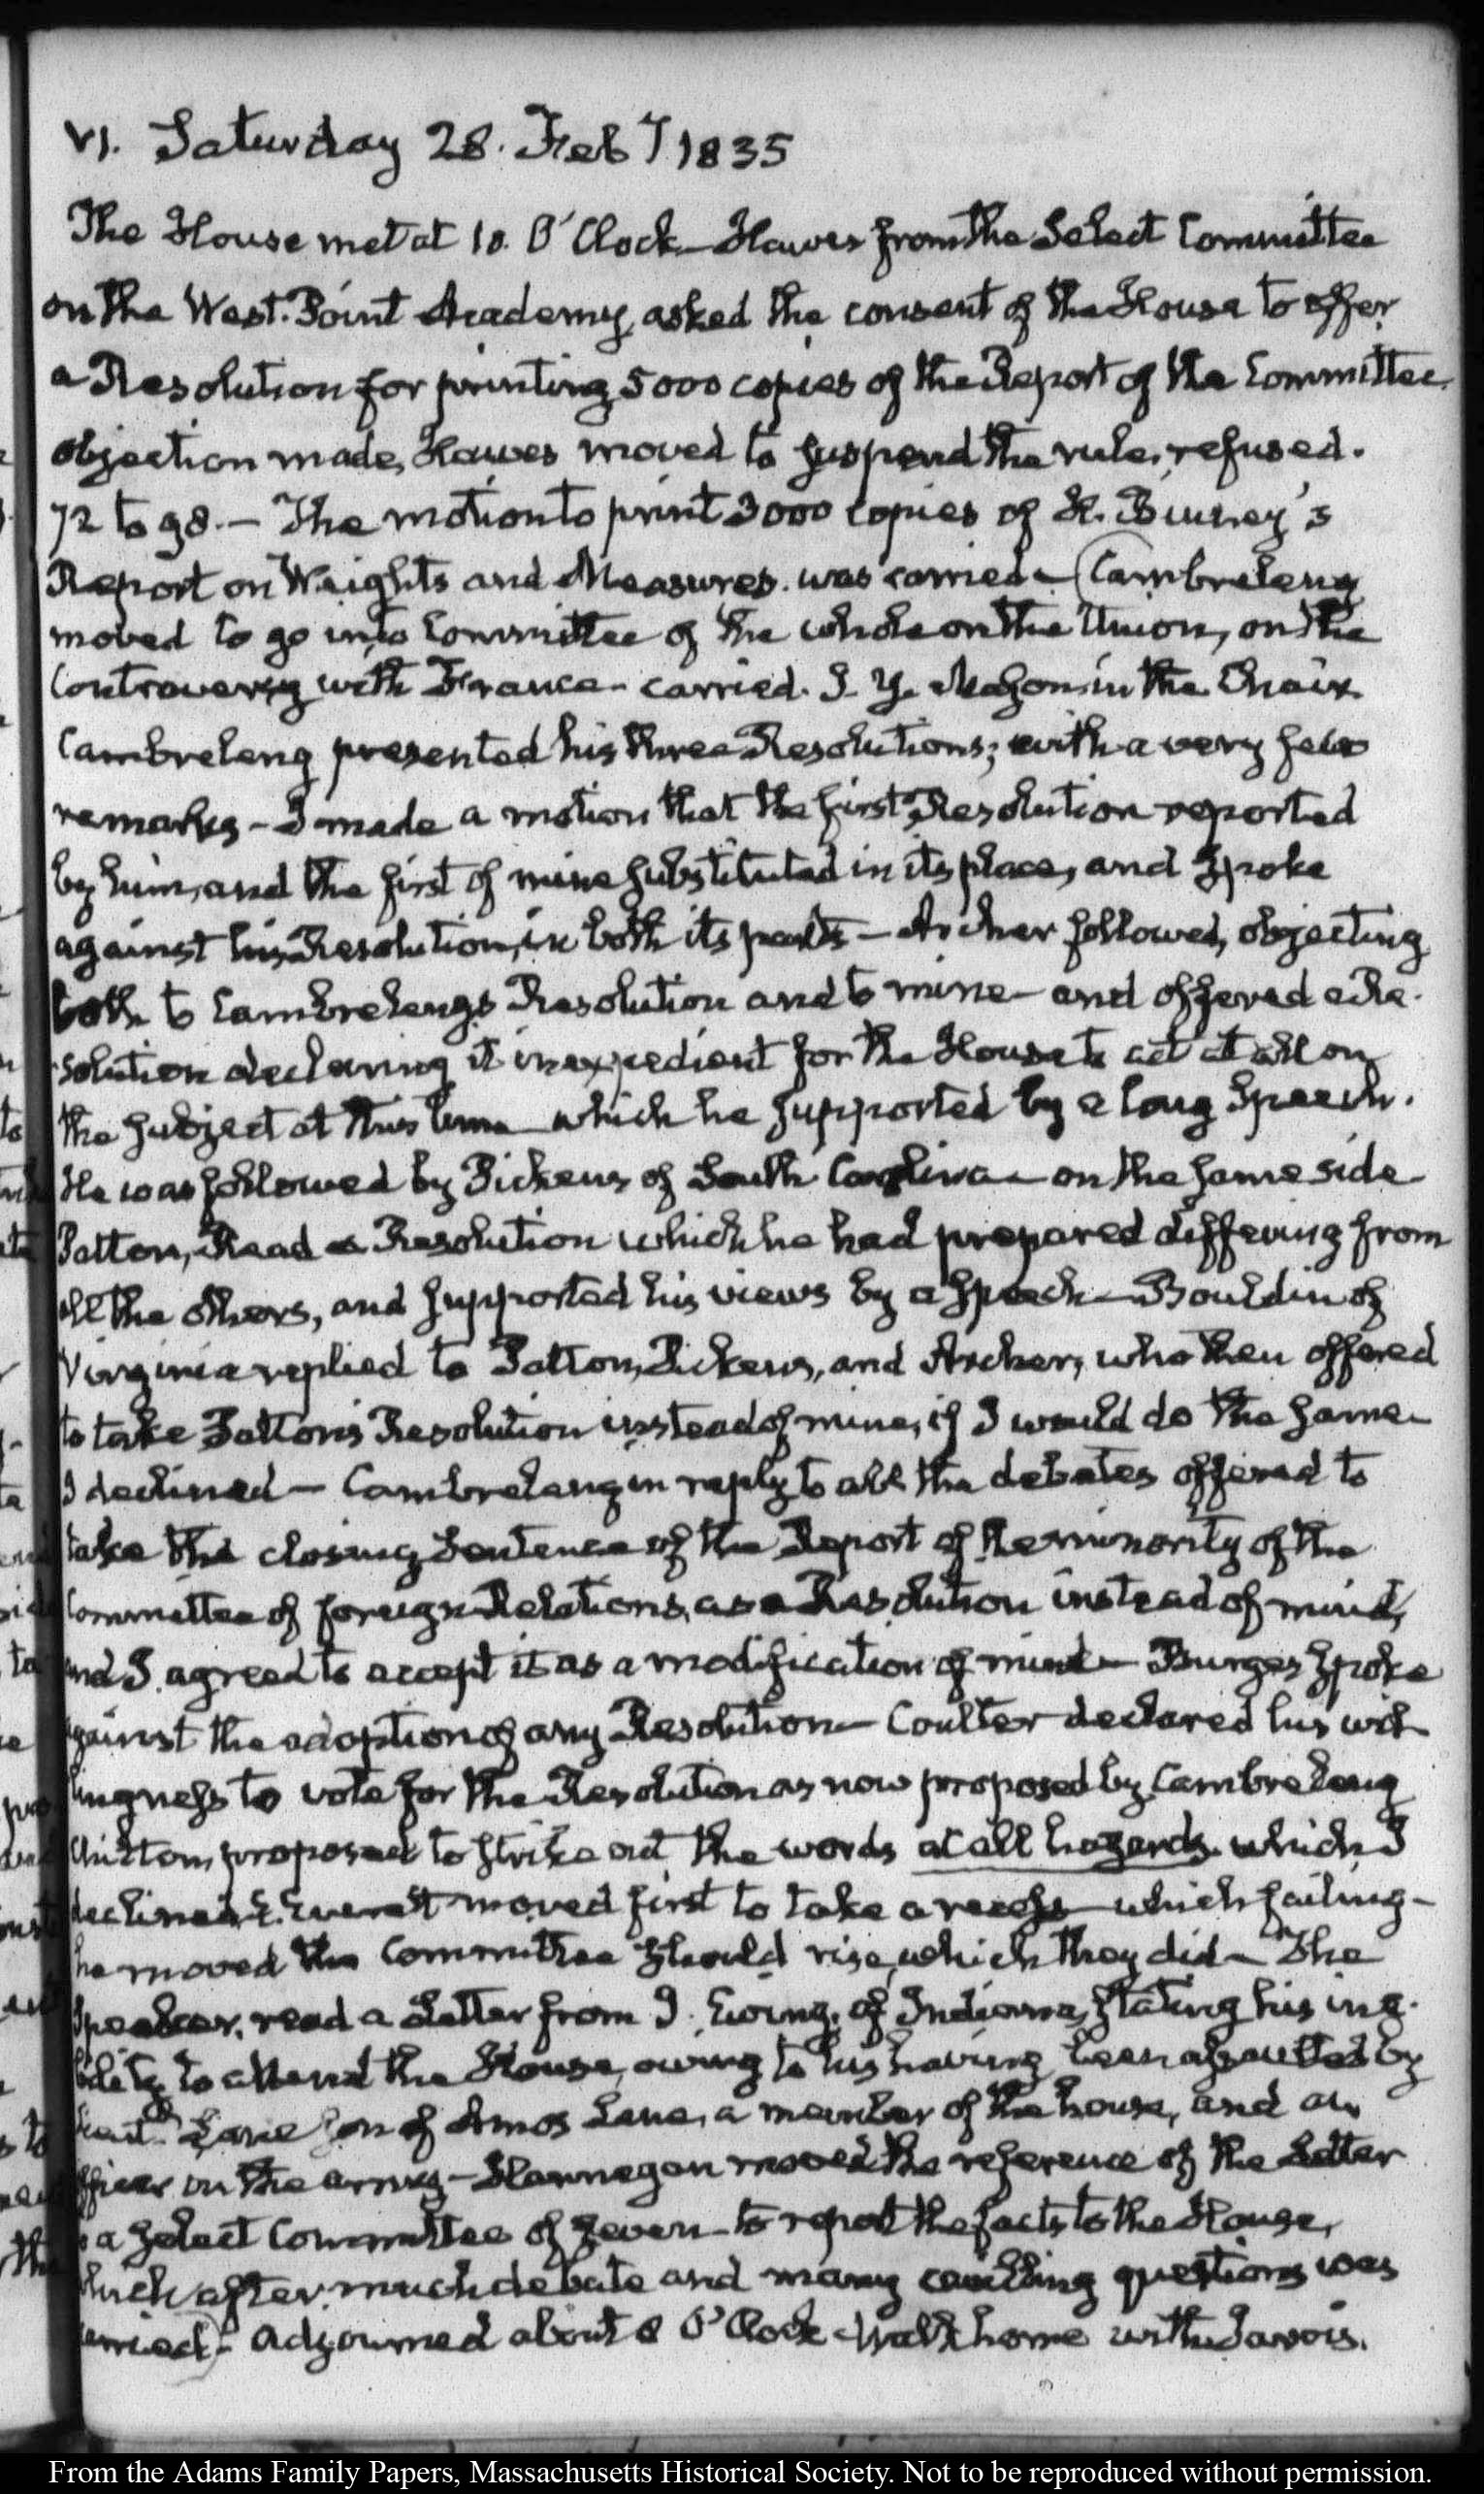 VI. Saturday 28. Feby 1835
The House met at 10. O'Clock — Hawes from the Select Committee
on the West-Point Academy, asked the consent of the House to offer
a Resolution for printing 5000 copies of the Report of the Committee.
objection made, Hawes moved to suspend the rule, refused.
72 to 98. — The motion to print 3000 copies of H. Binney's
Report on Weights and Measures. was carried — (Cambreleng
moved to go into Committee of the whole on the Union, on the
Controversy with France — carried. J. Y. Mason in the Chair
Cambreleng presented his three Resolutions; with a very few
remarks — I made a motion that the first Resolution reported
by him, and the first of mine substituted in its place, and spoke
against his Resolution, in both its parts — Archer followed, objecting
both to Cambreleng's Resolution and to mine — and offered a Re-
solution declaring it inexpedient for the House to act at all on
the subject at this time — which he supported by a long Speech.
He was followed by Pickens of South Carolina — on the same side
Patton, Read a Resolution which he had prepared differing from
all the others, and supported his views by a speech — Bouldin of
Virginia replied to Patton, Pickens, and Archer, who then offered
to take Patton's Resolution instead of mine, if I would do the same —
I declined — Cambreleng in reply to all the debates offered to
take the closing Sentence of the Report of the minority of the
Committee of foreign Relations, as a Resolution instead of mine,
and I agreed to accept it as a modification of mine — Burges spoke
against the adoption of any Resolution — Coulter declared his wil-
lingness to vote for the Resolution as now proposed by Cambreleng
Chilton, proposed to strike out the words at all hazards. which I
declined. E. Everett moved first to take a recess — which failing —
he moved the Committee should rise, which they did — The
Speaker, read a Letter from J. Ewing, of Indiana, stating his ina-
bility to attend the House, owing to his having been assaulted by
Lieut. Lane son of Amos Lane, a member of the house, and an
officer in the army — Hannegan moved the reference of the Letter
to a Select Committee of seven — to report the facts to the House,
which after much debate and many cavilling questions was
carried) — Adjourned about 8 O'Clock — Walk home with Jarvis.
From the Adams Family Papers, Massachusetts Historical Society. Not to be reproduced without permission.